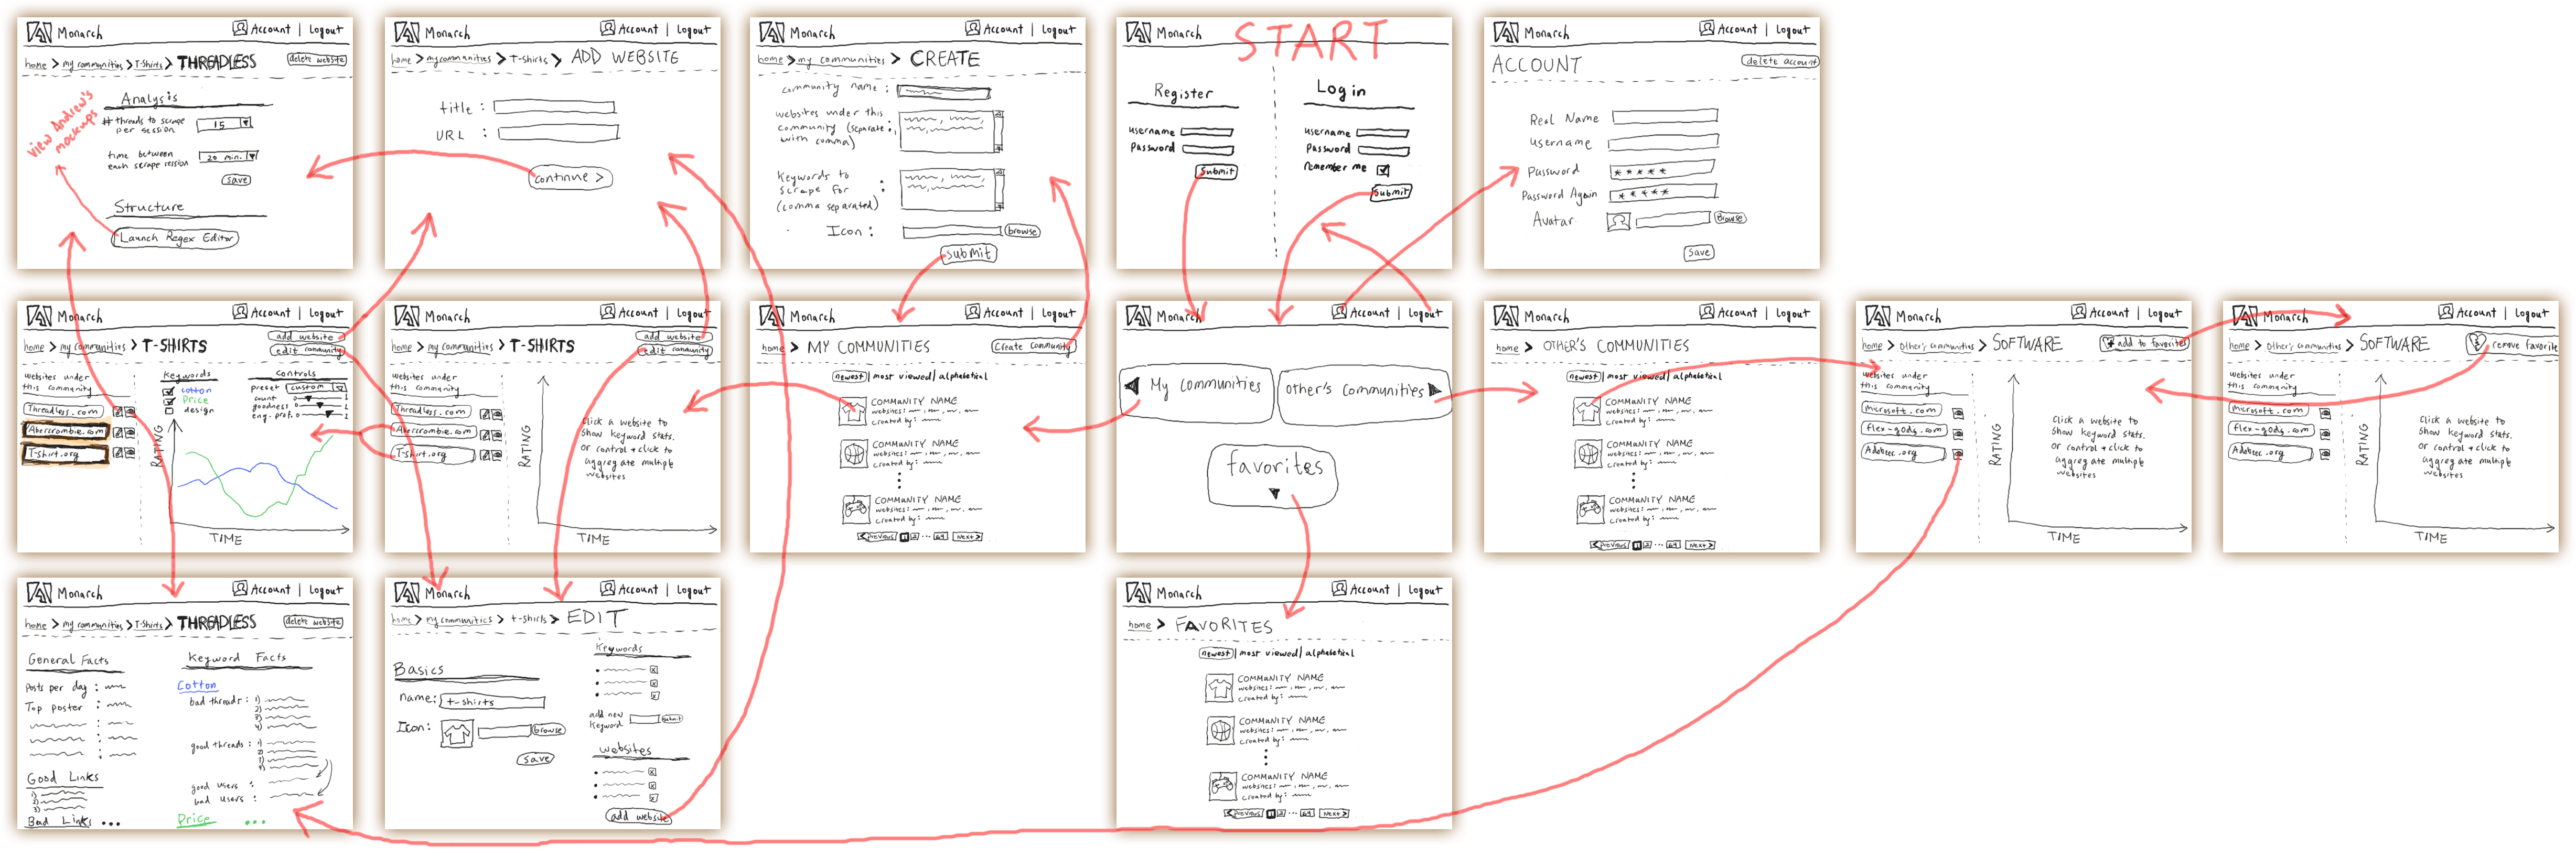 Monarch
Account | Logout
home > my communities > T-Shirts > THREADLESS
delete website
View Andrew's mockups
Analysis
# threads to scrape per session
15
time between each scrape session
20 min.
save
Structure
Launch Regex Editor
Monarch
Account | Logout
home > my communities > T-shirts > ADD WEBSITE
title :
URL :
continue >
Monarch
Account | Logout
home > my communities > CREATE
community name :
websites under this community (separate with comma) :
Keywords to scrape for (comma separated) :
Icon :
browse
submit
START
Monarch
Register
username
Password
submit
Login
username
Password
remember me
submit
Monarch
Account | Logout
ACCOUNT
delete account
Real Name
username
Password
*****
Password Again
*****
Avatar
Browse
save
Monarch
Account | Logout
home > my communities > T-SHIRTS
add website
edit community
websites under this community
Threadless.com
Abercrombie.com
T-shirt.org
Keywords
cotton
Price
design
Controls
preset
custom
count
goodness
eng. prof.
RATING
TIME
Monarch
Account | Logout
home > my communities > T-SHIRTS
add website
edit community
websites under this community
Threadless.com
Abercrombie.com
T-shirt.org
RATING
Click a website to show keyword stats. or control + click to aggregate multiple websites
TIME
Monarch
Account | Logout
home > MY COMMUNITIES
Create Community
newest | most viewed | alphabetical
COMMUNITY NAME
websites:
created by:
COMMUNITY NAME
websites:
created by:
COMMUNITY NAME
websites:
created by:
< Previous 1 2 ... 64 Next >
Monarch
Account | Logout
My Communities
Other's Communities
favorites
Monarch
Account | Logout
home > OTHER'S COMMUNITIES
newest | most viewed | alphabetical
COMMUNITY NAME
websites:
created by:
COMMUNITY NAME
websites:
created by:
COMMUNITY NAME
websites:
created by:
< Previous 1 2 ... 64 Next >
Monarch
Account | Logout
home > Other's Communities > SOFTWARE
add to favorites
websites under this community
microsoft.com
flex-gods.com
RATING
Click a website to show keyword stats. or control + click to aggregate multiple websites
TIME
Monarch
Account | Logout
home > Other's Communities > SOFTWARE
remove favorite
websites under this community
microsoft.com
flex-gods.com
RATING
Click a website to show keyword stats. or control + click to aggregate multiple websites
TIME
Monarch
Account | Logout
home > my communities > T-Shirts > THREADLESS
delete website
General Facts
Posts per day :
Top poster :
Good Links
1)
2)
3)
Bad Links ...
Keyword Facts
Cotton
bad threads : 1)
2)
3)
4)
good threads : 1)
2)
3)
4)
good users :
bad users :
Price ...
Monarch
Account | Logout
home > my communities > t-shirts > EDIT
Basics
name: t-shirts
Icon:
browse
save
Keywords
add new keyword
submit
websites
add website
Monarch
Account | Logout
home > FAVORITES
newest | most viewed | alphabetical
COMMUNITY NAME
websites:
created by:
COMMUNITY NAME
websites:
created by:
COMMUNITY NAME
websites:
created by:
< Previous 1 2 ... 64 Next >